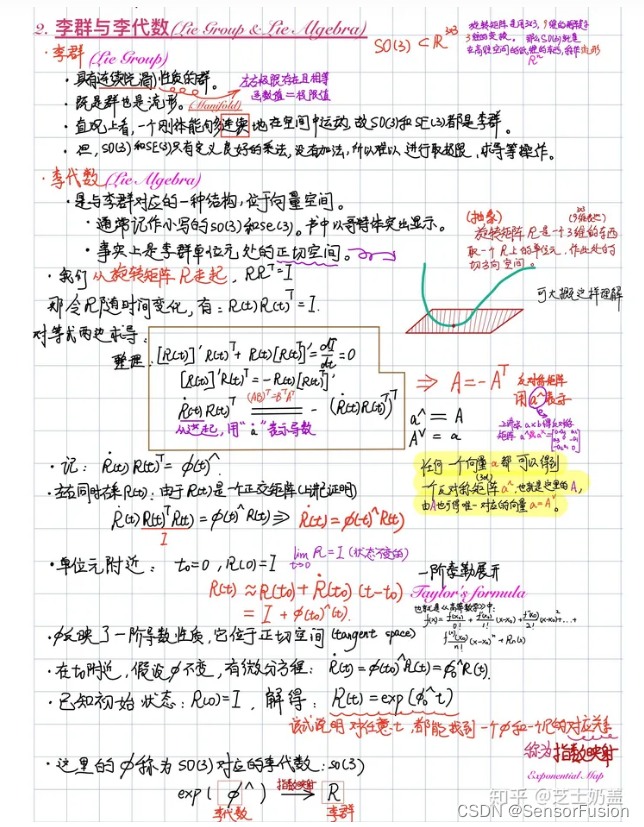 2. 李群与李代数 (Lie Group & Lie Algebra)
SO(3) ⊂ R^{3×3}
旋转矩阵是用3×3, 9维的矩阵表
3维的变换。那么SO(3)就是
在高维空间的低维的东西, 称作
R^n
· 李群 (Lie Group)
· 具有连续(光滑)性质的群。
左右极限存在且相等
函数值=极限值
· 既是群也是流形。(Manifold)
· 直观上看, 一个刚体能够连续地在空间中运动, 故SO(3)和SE(3)都是李群。
· 但, SO(3)和SE(3)只有定义良好的乘法, 没有加法, 所以难以进行取极限、求导等操作。
· 李代数 (Lie Algebra)
· 是与李群对应的一种结构, 位于向量空间。
· 通常记作小写的so(3)和se(3)。书中以哥特体突出显示。
· 事实上是李群单位元处的正切空间。
(抽象)
旋转矩阵R是一个3维的东西
取一个R上的单位元, 作此处的
切空间。
可大概这样理解
· 我们从旋转矩阵R走起, RR^T=I
那令R随时间变化, 有: R(t)R(t)^T=I.
对等式两边求导:
整理: [R(t)]'R(t)^T+R(t)[R(t)^T]'=dI/dt=0
[R(t)]'R(t)^T=-R(t)[R(t)^T]'
Ṙ(t)R(t)^T (AB)^T=B^TA^T -(Ṙ(t)R(t)^T)^T
从这起, 用"ȧ"表示导数
⇒ A=-A^T 反对称矩阵
用a^表示
a^ = A
A^∨ = a
· 记: Ṙ(t)R(t)^T=ϕ(t)^.
任何一个向量a都可以得到
一个反对称矩阵a^, 也就是这里的A,
由A也可得唯一对应的向量a=A^∨。
· 左右同时右乘R(t): 由于R(t)是一个正交矩阵(上把证明)
Ṙ(t)R(t)^TR(t)=ϕ(t)^R(t) ⇒ Ṙ(t)=ϕ(t)^R(t)
I
· 单位元附近: t₀=0, R(0)=I lim R=I (状态不变的)
t→0
R(t)≈R(t₀)+Ṙ(t₀)(t-t₀)
=I+ϕ(t₀)^(t).
一阶泰勒展开
Taylor's formula
也就是《高等数学》中:
f(x)=f(x₀)/0!+f'(x₀)/1!(x-x₀)+f''(x₀)/2!(x-x₀)²+...+
f^(n)(x₀)/n!(x-x₀)^n+Rn(x)
· ϕ反映了一阶导数性质, 它位于正切空间(tangent space)
· 在t₀附近, 假设ϕ不变, 有微分方程: Ṙ(t)=ϕ(t₀)^R(t)=ϕ₀^R(t).
· 已知初始状态: R(0)=I, 解得: R(t)=exp(ϕ₀^t)
该式说明对任意t, 都能找到一个ϕ和一个R的对应关系
称为指数映射
Exponential Map
· 这里的ϕ称为SO(3)对应的李代数: so(3)
exp(ϕ^) 指数映射 → R
李代数 李群
知乎 @芝士奶盖
CSDN @SensorFusion